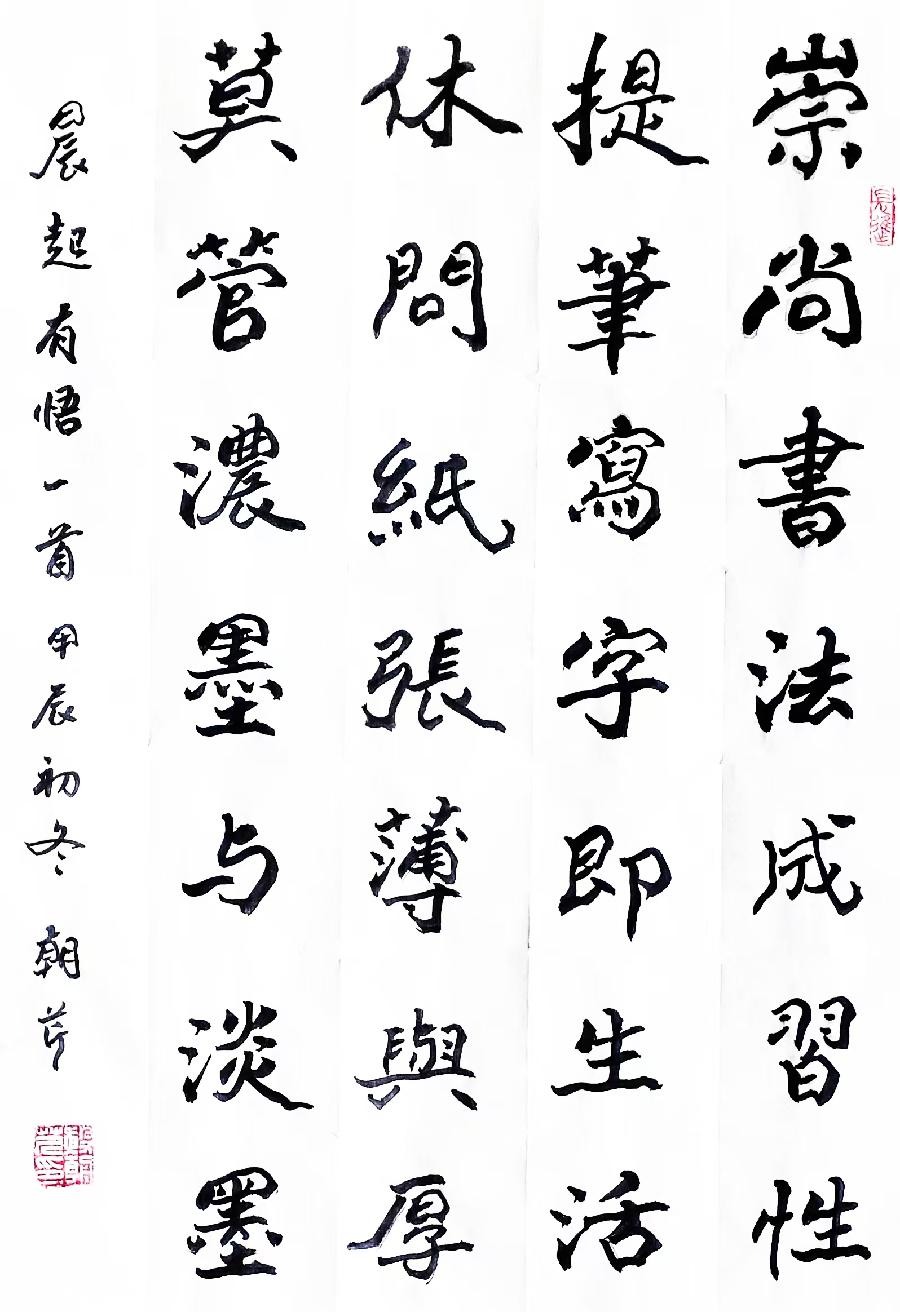 崇尚書法成習性
提筆寫字即生活
休問紙張薄與厚
莫管濃墨与淡墨
晨起有悟一首甲辰初冬 朝芹